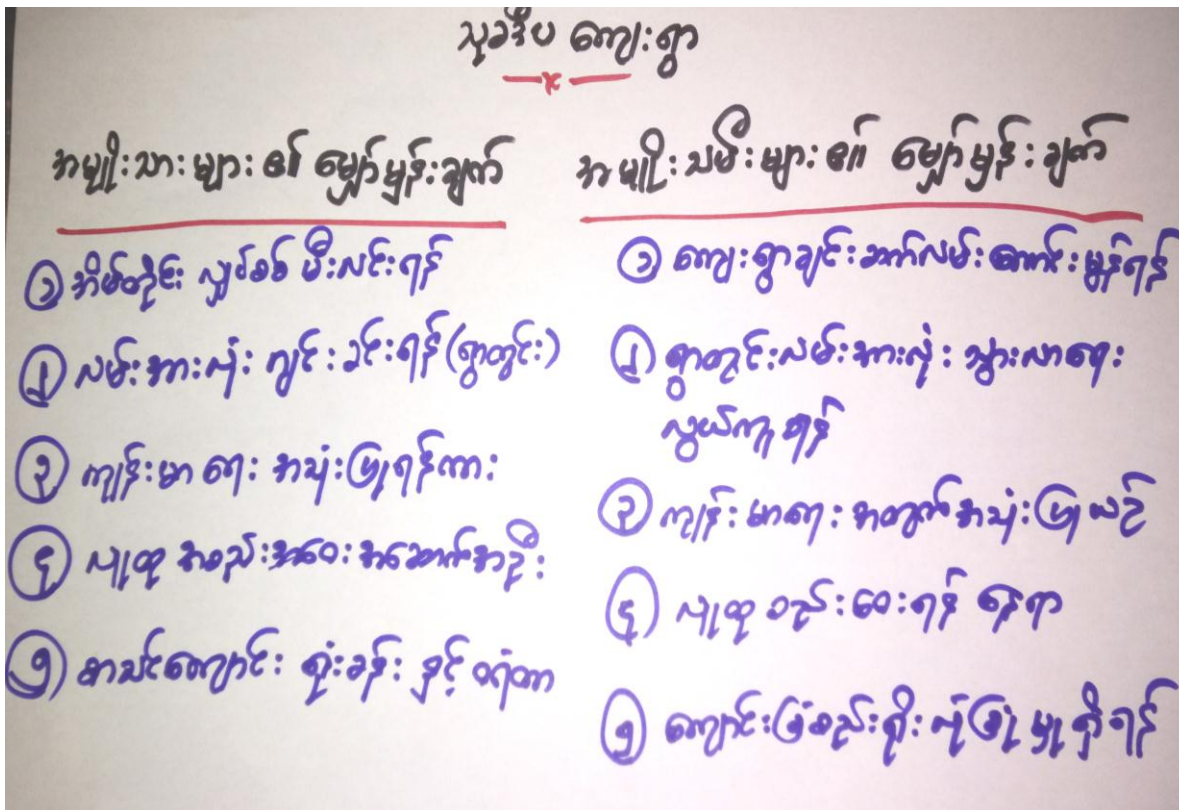 သုခဒီပ ကျေးရွာ
အမျိုးသားများ၏ မျှော်မှန်းချက်
၁ အိမ်တိုင်း လျှပ်စစ် မီးလင်းရန်
၂ လမ်းအားလုံး ကျင်းခင်းရန် (ရွာတွင်း)
၃ ကျန်းမာရေး အသုံးပြုရန်ကား
၄ လူထု အစည်းအဝေး အဆောက်အဦး
၅ စာသင်ကျောင်း ရုံးခန်း နှင့် ဝရံတာ
အမျိုးသမီးများ၏ မျှော်မှန်းချက်
၁ ကျေးရွာချင်းဆက်လမ်းကောင်းမွန်ရန်
၂ ရွာတွင်းလမ်းအားလုံး သွားလာရေး
လွယ်ကူရန်
၃ ကျန်းမာရေး အတွက်အသုံးပြုယဉ်
၄ လူထု စည်းဝေးရန် နေရာ
၅ ကျောင်းခြံစည်းရိုး လုံခြုံမှုရှိရန်